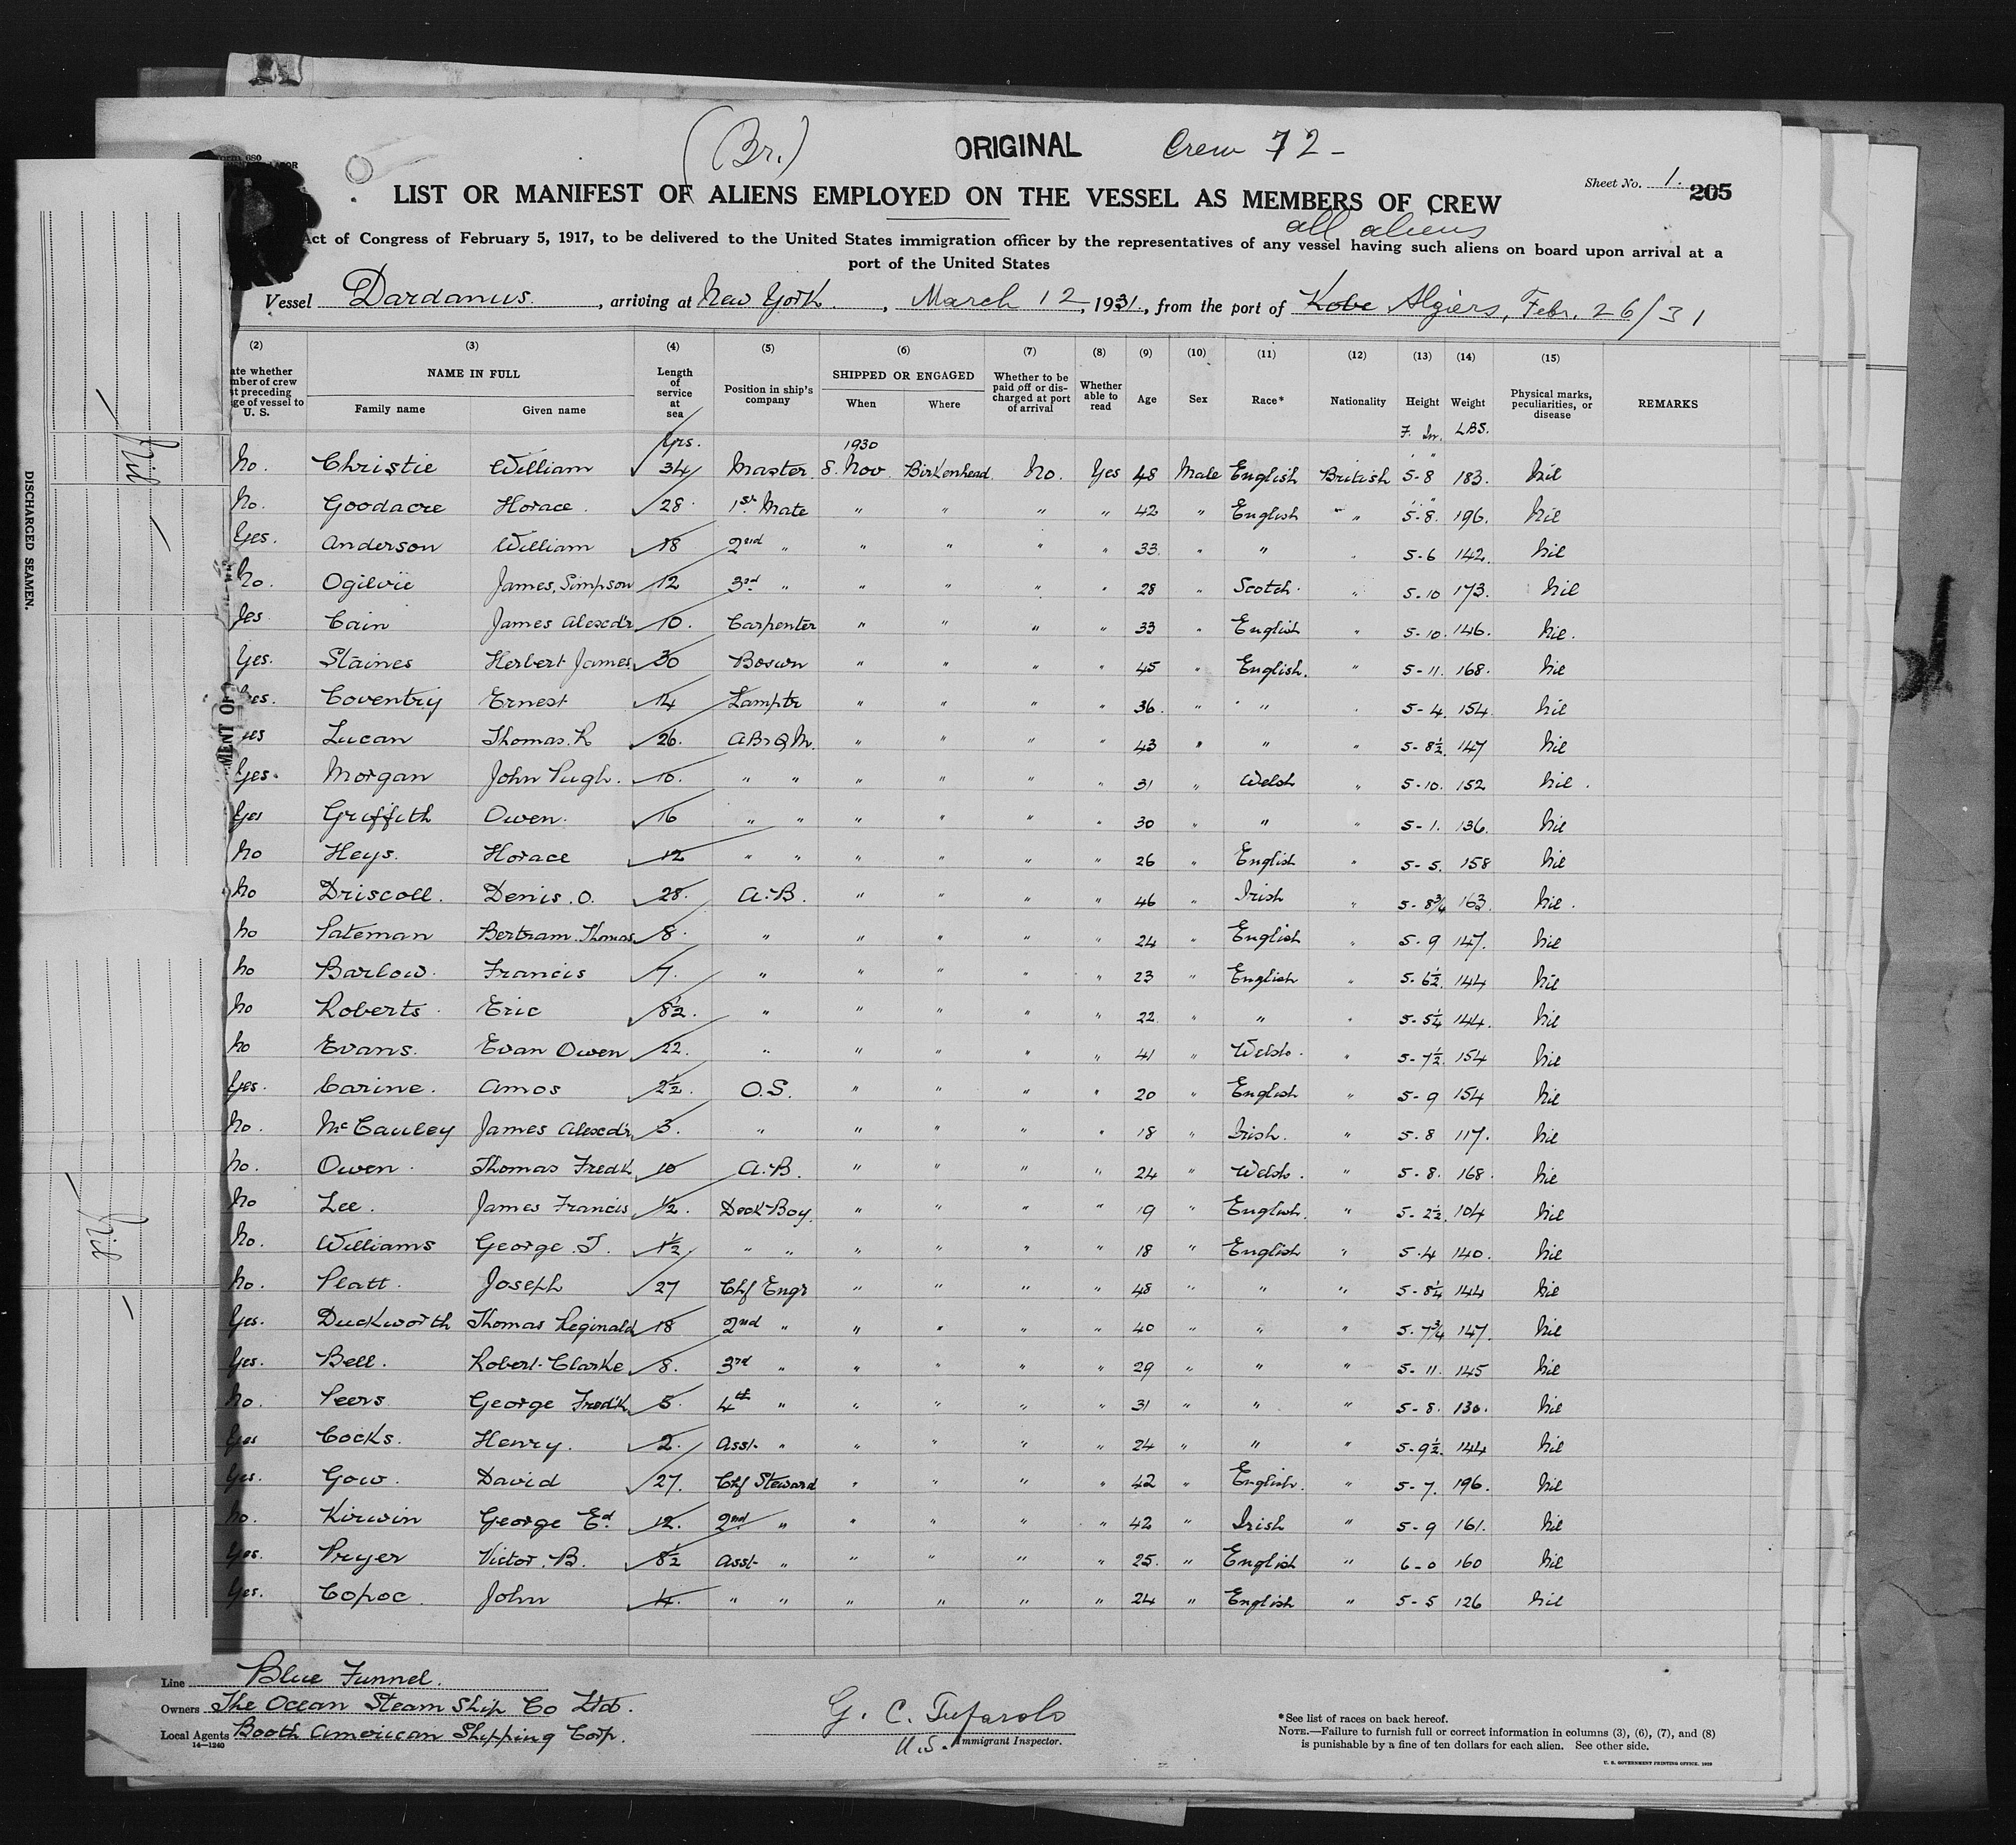 (Br.) ORIGINAL Crew 72 -
Sheet No. 1. 205
LIST OR MANIFEST OF ALIENS EMPLOYED ON THE VESSEL AS MEMBERS OF CREW
all aliens
Act of Congress of February 5, 1917, to be delivered to the United States immigration officer by the representatives of any vessel having such aliens on board upon arrival at a
port of the United States
Vessel Dardanus. , arriving at New York , March 12 , 1931., from the port of Kobe Algiers, Febr. 26/31
(2) (3) (4) (5) (6) (7) (8) (9) (10) (11) (12) (13) (14) (15)
NAME IN FULL Length of service at sea Position in ship's company SHIPPED OR ENGAGED Whether to be paid off or discharged at port of arrival Whether able to read Age Sex Race* Nationality Height Weight Physical marks, peculiarities, or disease REMARKS
Family name Given name When Where
Yrs. 1930 F. In. LBS.
No. Christie William 34 Master 8. Nov. Birkenhead. No. Yes 48 Male English British 5-8 183. Nil
No. Goodacre Horace. 28. 1st Mate " " " " 42 " English " " 5-8. 196. Nil
Yes. Anderson William 18 2nd " " " " " 33. " " " 5-6 142. Nil
No. Ogilvie James, Simpson 12 3rd " " " " " 28 " Scotch. " 5-10 173. Nil
Yes Cain James Alexdr 10. Carpenter " " " " 33 " English " 5-10. 146. Nil.
Yes. Staines Herbert James 30 Boswn " " " " 45 " English. " 5-11. 168. Nil
Yes. Coventry Ernest 14 Lamptr " " " " 36. " " " 5-4. 154. Nil
Yes Lucan Thomas. R 26. AB & QM. " " " " 43 " " " 5-8½. 147 Nil
Yes. Morgan John Pugh. 10. " " " " " " 31 " Welsh " 5-10. 152 Nil.
Yes Griffith Owen. 16 " " " " " " 30 " " " 5-1. 136. Nil
No Heys. Horace 12 " " " " " " 26 " English " 5-5. 158 Nil
No Driscoll. Denis. O. 28. A.B. " " " " 46 " Irish " 5-8¾ 163. Nil.
No Pateman Bertram. Thomas 8. " " " " " 24 " English " 5-9 147. Nil
No Barlow. Francis 7. " " " " " 23 " English " 5-6½. 144 Nil
No Roberts. Eric 8½. " " " " " 22. " " " 5-5¼ 144. Nil
No Evans. Evan Owen 22. " " " " " 41 " Welsh. " 5-7½. 154 Nil
Yes. Carine. Amos 2½. O.S. " " " " 20 " English " 5-9 154 Nil
No. McCauley James Alexdr 3. " " " " " 18 " Irish. " 5-8 117. Nil
No. Owen. Thomas Fredk 10 A.B. " " " " 24 " Welsh. " 5-8. 168. Nil
No Lee. James Francis ½. Deck Boy. " " " " 19 " English. " 5-2½. 104 Nil
No. Williams George. T. 1½ " " " " " " 18 " English " 5.4 140. Nil
No. Platt. Joseph 27 Chf Engr " " " " 48 " " " 5-8¼ 144 Nil
Yes. Duckworth Thomas Reginald 18 2nd " " " " " 40 " " " 5.7¾ 147. Nil
Yes. Bell. Robert. Clarke 8. 3rd " " " " " 29 " " " 5-11. 145 Nil
No. Peers George Fredk 5. 4th " " " " " 31 " " " 5-8. 130. Nil
Yes Cocks. Henry. 2. Asst. " " " " " 24 " " " 5-9½. 144 Nil
Yes. Gow. David 27. Chf Steward " " " " 42 " English. " 5-7. 196. Nil
No. Kirwin George Ed. 12. 2nd " " " " " 42 " Irish " 5-9 161. Nil
Yes. Pryer Victor. B. 8½ Asst " " " " " 25. " English " 6-0 160 Nil
Yes. Copoc. John 4. " " " " " " 24 " English " 5-5 126 Nil
Line Blue Funnel.
Owners The Ocean Steam Ship Co Ltd.
Local Agents Booth American Shipping Corp.
14-1240
U.S. Immigrant Inspector.
*See list of races on back hereof.
NOTE.—Failure to furnish full or correct information in columns (3), (6), (7), and (8)
is punishable by a fine of ten dollars for each alien. See other side.
U. S. GOVERNMENT PRINTING OFFICE. 1928
DISCHARGED SEAMEN.
— Nil —
— Nil —
MENT OF